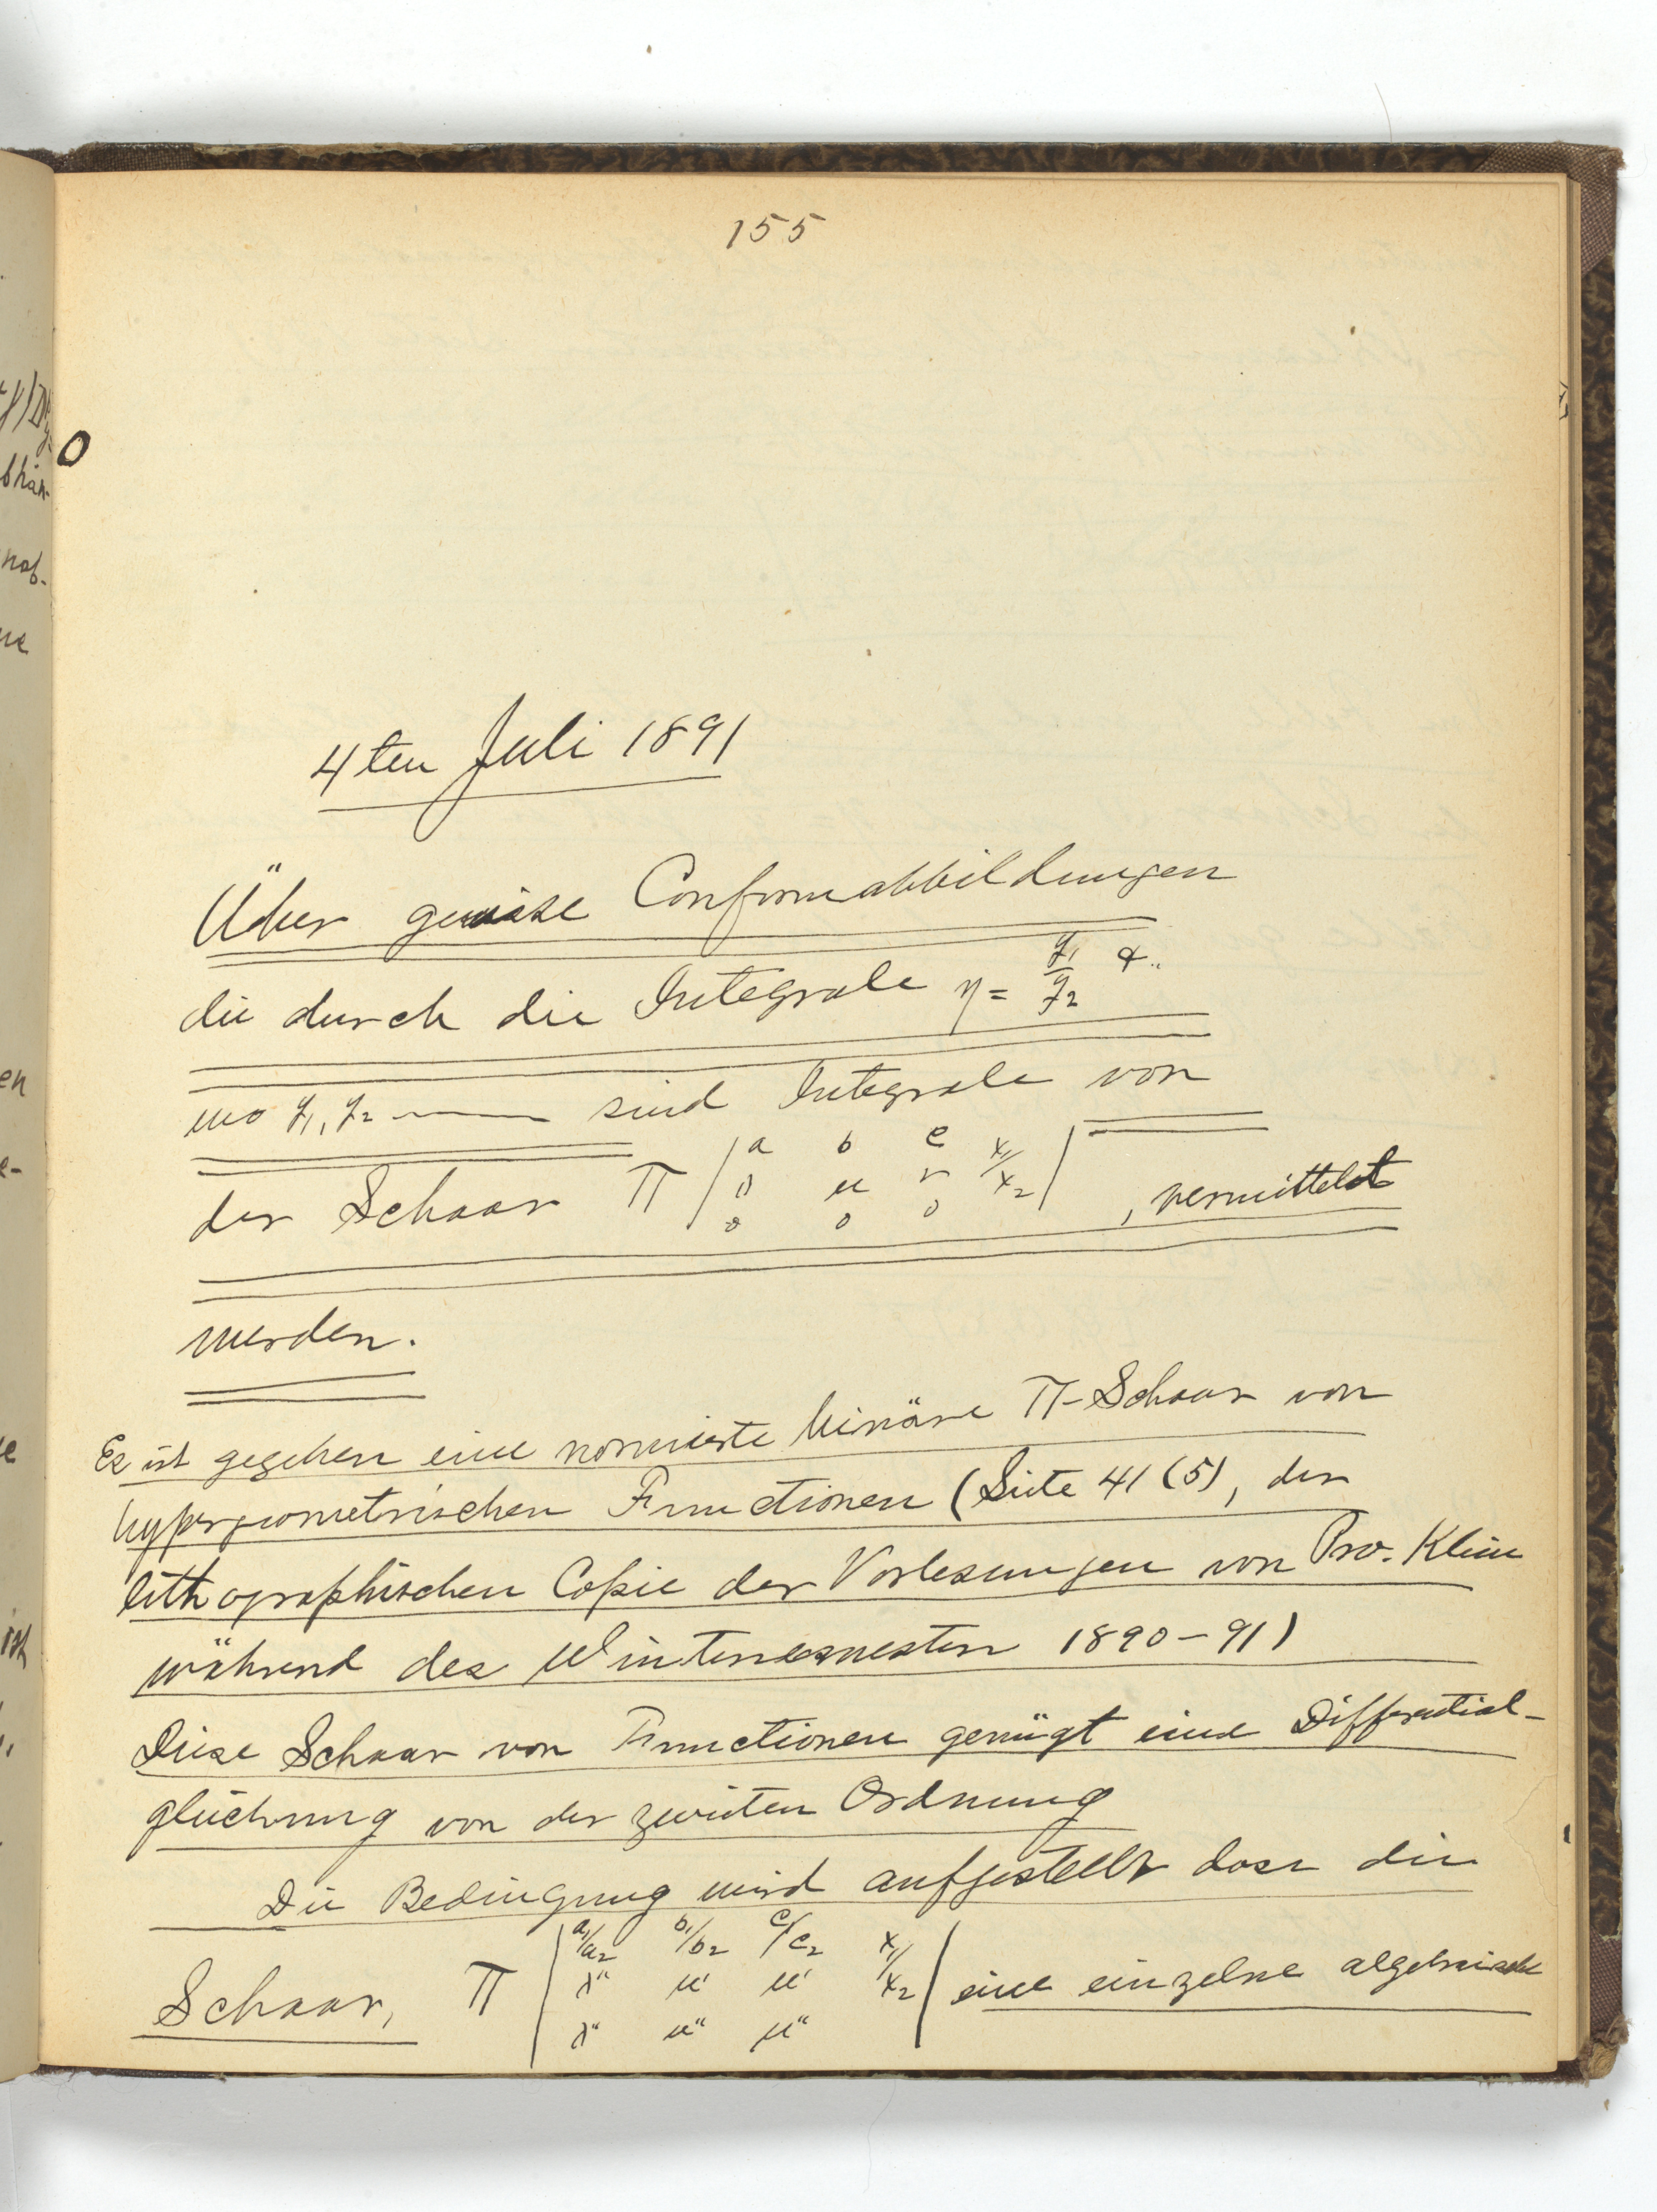 155
4ten Juli 1891
Über gewisse Conformabbildungen
die durch die Integrale η = y₁/y₂
wo y₁, y₂ —— sind Integrale von
der Schaar Π | a b c x₁/x₂ |
λ μ ν
0 0 0
, vermittelst
werden.
Es ist gegeben eine normierte binäre Π-Schaar von
hypergeometrischen Functionen (Seite 41 (5), der
lithographischen Copie der Vorlesungen von Pro. Klein
während des Wintersemesters 1890-91)
Diese Schaar von Functionen genügt eine Differential-
gleichung von der zweiten Ordnung
Die Bedingung wird aufgestellt dass die
Schaar, Π | a₁/a₂ b₁/b₂ c₁/c₂ x₁/x₂ | eine einzelne algebraische
λ' μ' μ'
λ" μ" μ"